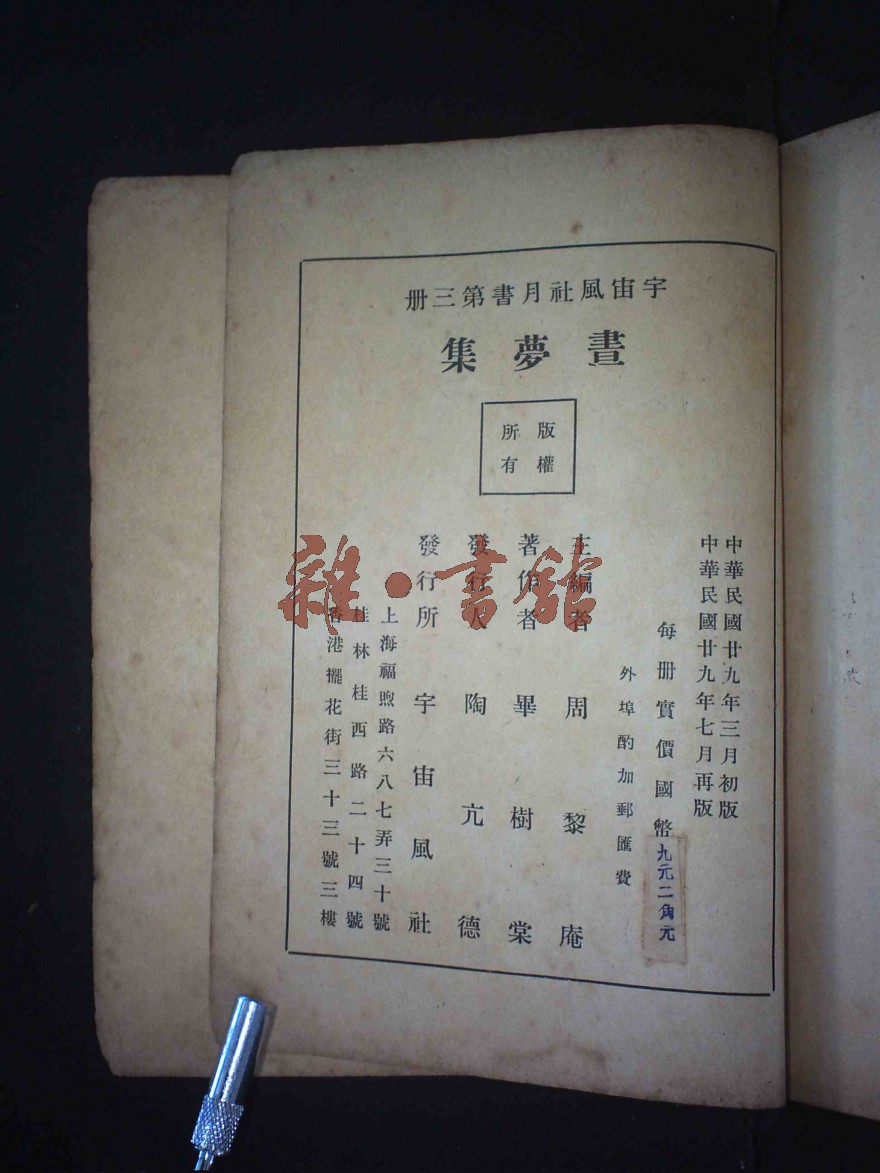 宇宙風社月書第三册
晝夢集
版權
所有
中華民國廿九年三月初版
中華民國廿九年七月再版
每册實價國幣九元二角元
外埠酌加郵匯費
主編者 周黎庵
著作者 畢樹棠
發行人 陶亢德
發行所 宇宙風社
上海福煦路六八七弄三十號
桂林桂西路二十四號
香港擺花街三十三號三樓
雜·書館